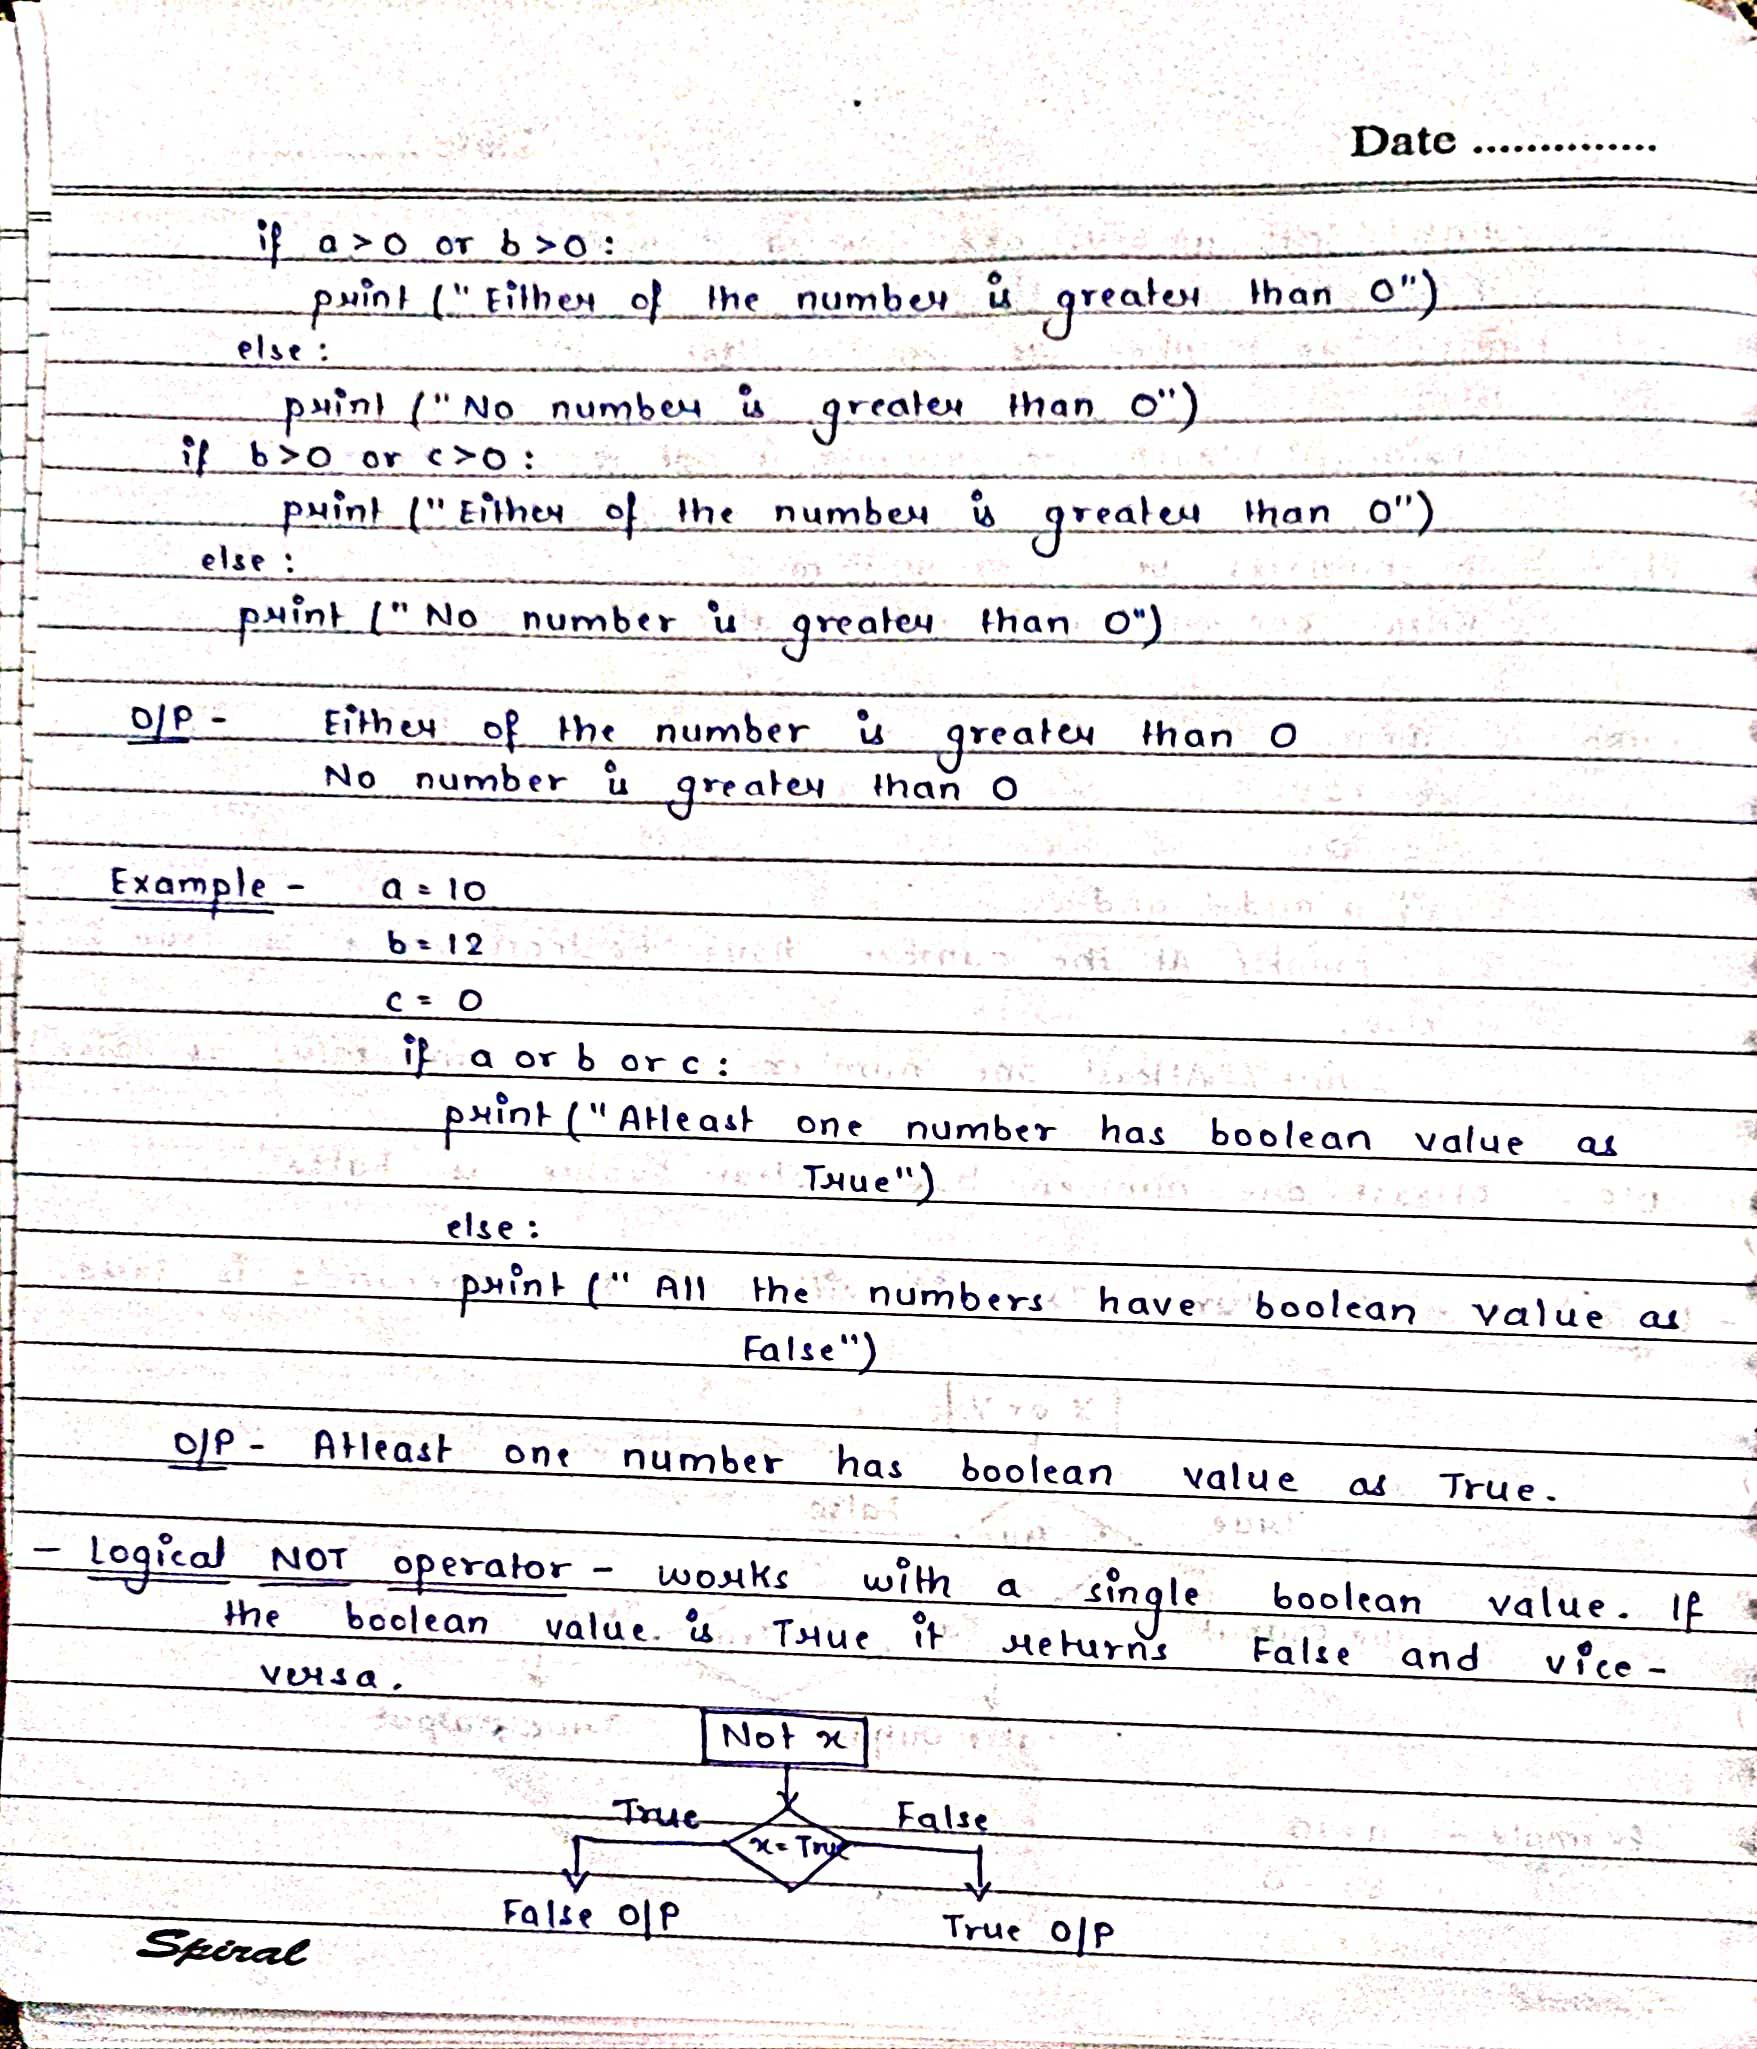 Date ..............
if a>0 or b>0 :
print ("Either of the number is greater than 0")
else :
print ("No number is greater than 0")
if b>0 or c>0 :
print ("Either of the number is greater than 0")
else :
print ("No number is greater than 0")
O/P - Either of the number is greater than 0
No number is greater than 0
Example - a = 10
b = 12
c = 0
if a or b or c :
print ("Atleast one number has boolean value as
True")
else :
print ("All the numbers have boolean value as
False")
O/P - Atleast one number has boolean value as True.
- Logical NOT operator - works with a single boolean value. If
the boolean value is True it returns False and vice-
versa.
Not x
True False
x = True
False O/P True O/P
Spiral